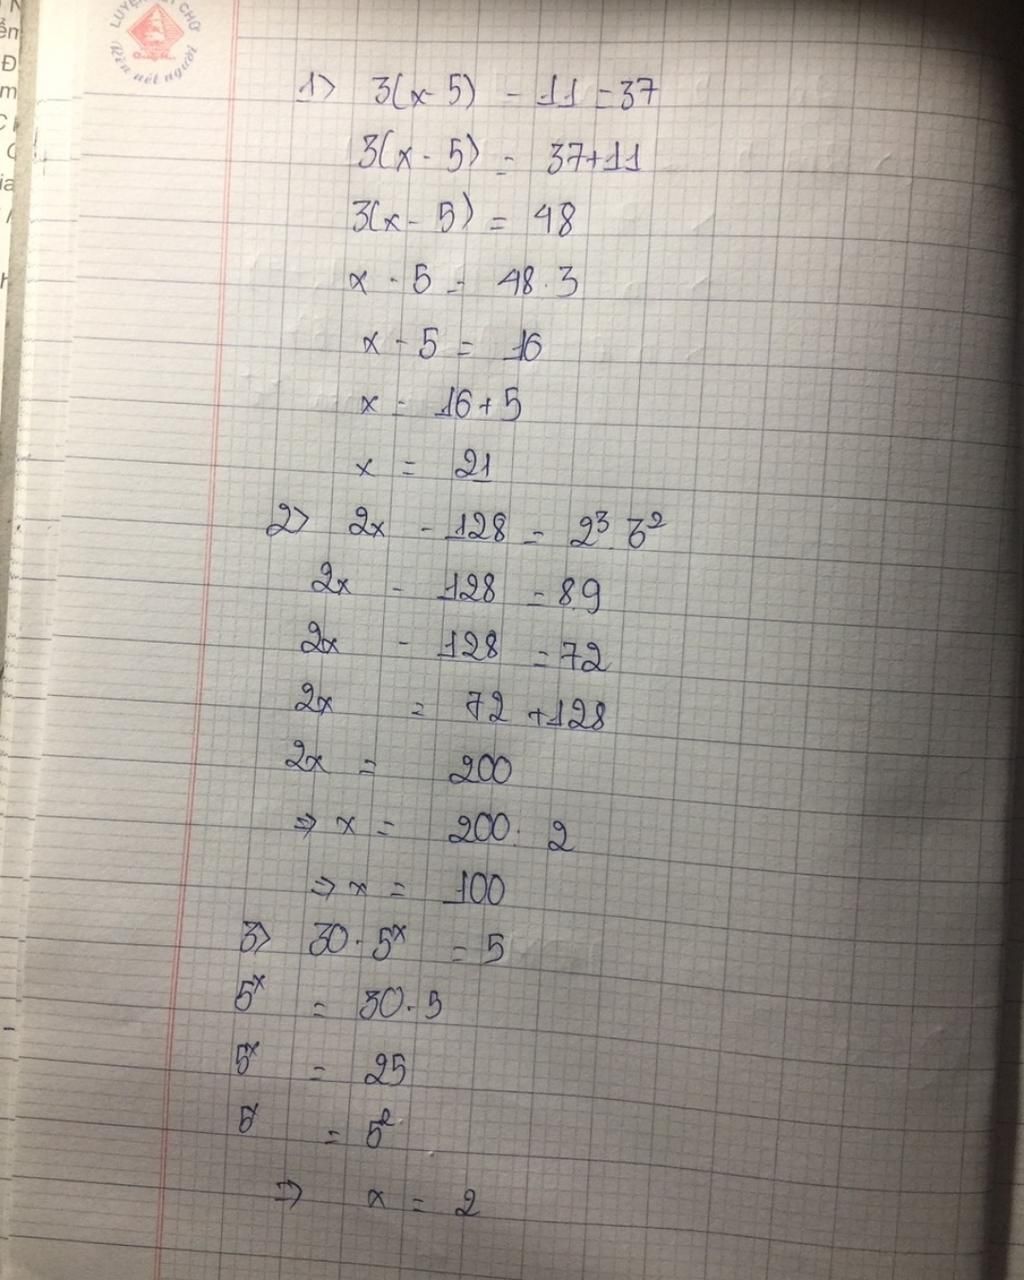 LUYỆN CHỮ
Rèn nết người
1> 3(x - 5) - 11 = 37
3(x - 5) = 37+11
3(x - 5) = 48
x - 5 = 48 . 3
x - 5 = 16
x = 16 + 5
x = 21
2> 2x - 128 = 2³ . 3²
2x - 128 = 8.9
2x - 128 = 72
2x = 72 + 128
2x = 200
⇒ x = 200 . 2
⇒ x = 100
3> 30 - 5ˣ = 5
5ˣ = 30 - 5
5ˣ = 25
5ˣ = 5²
⇒ x = 2